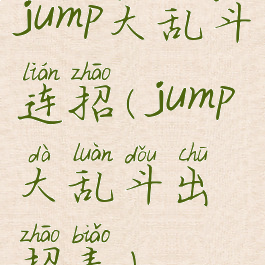 jump大乱斗
lián zhāo
连招(jump
dà luàn dǒu chū
大乱斗出
zhāo biǎo
招表)